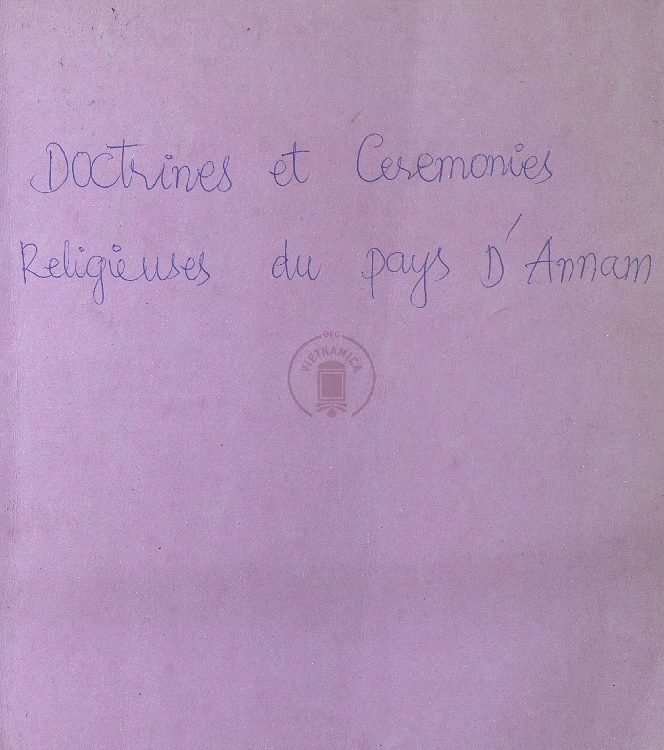 Doctrines et Ceremonies
Religieuses du pays D'Annam
ERC
VIETNAMICA